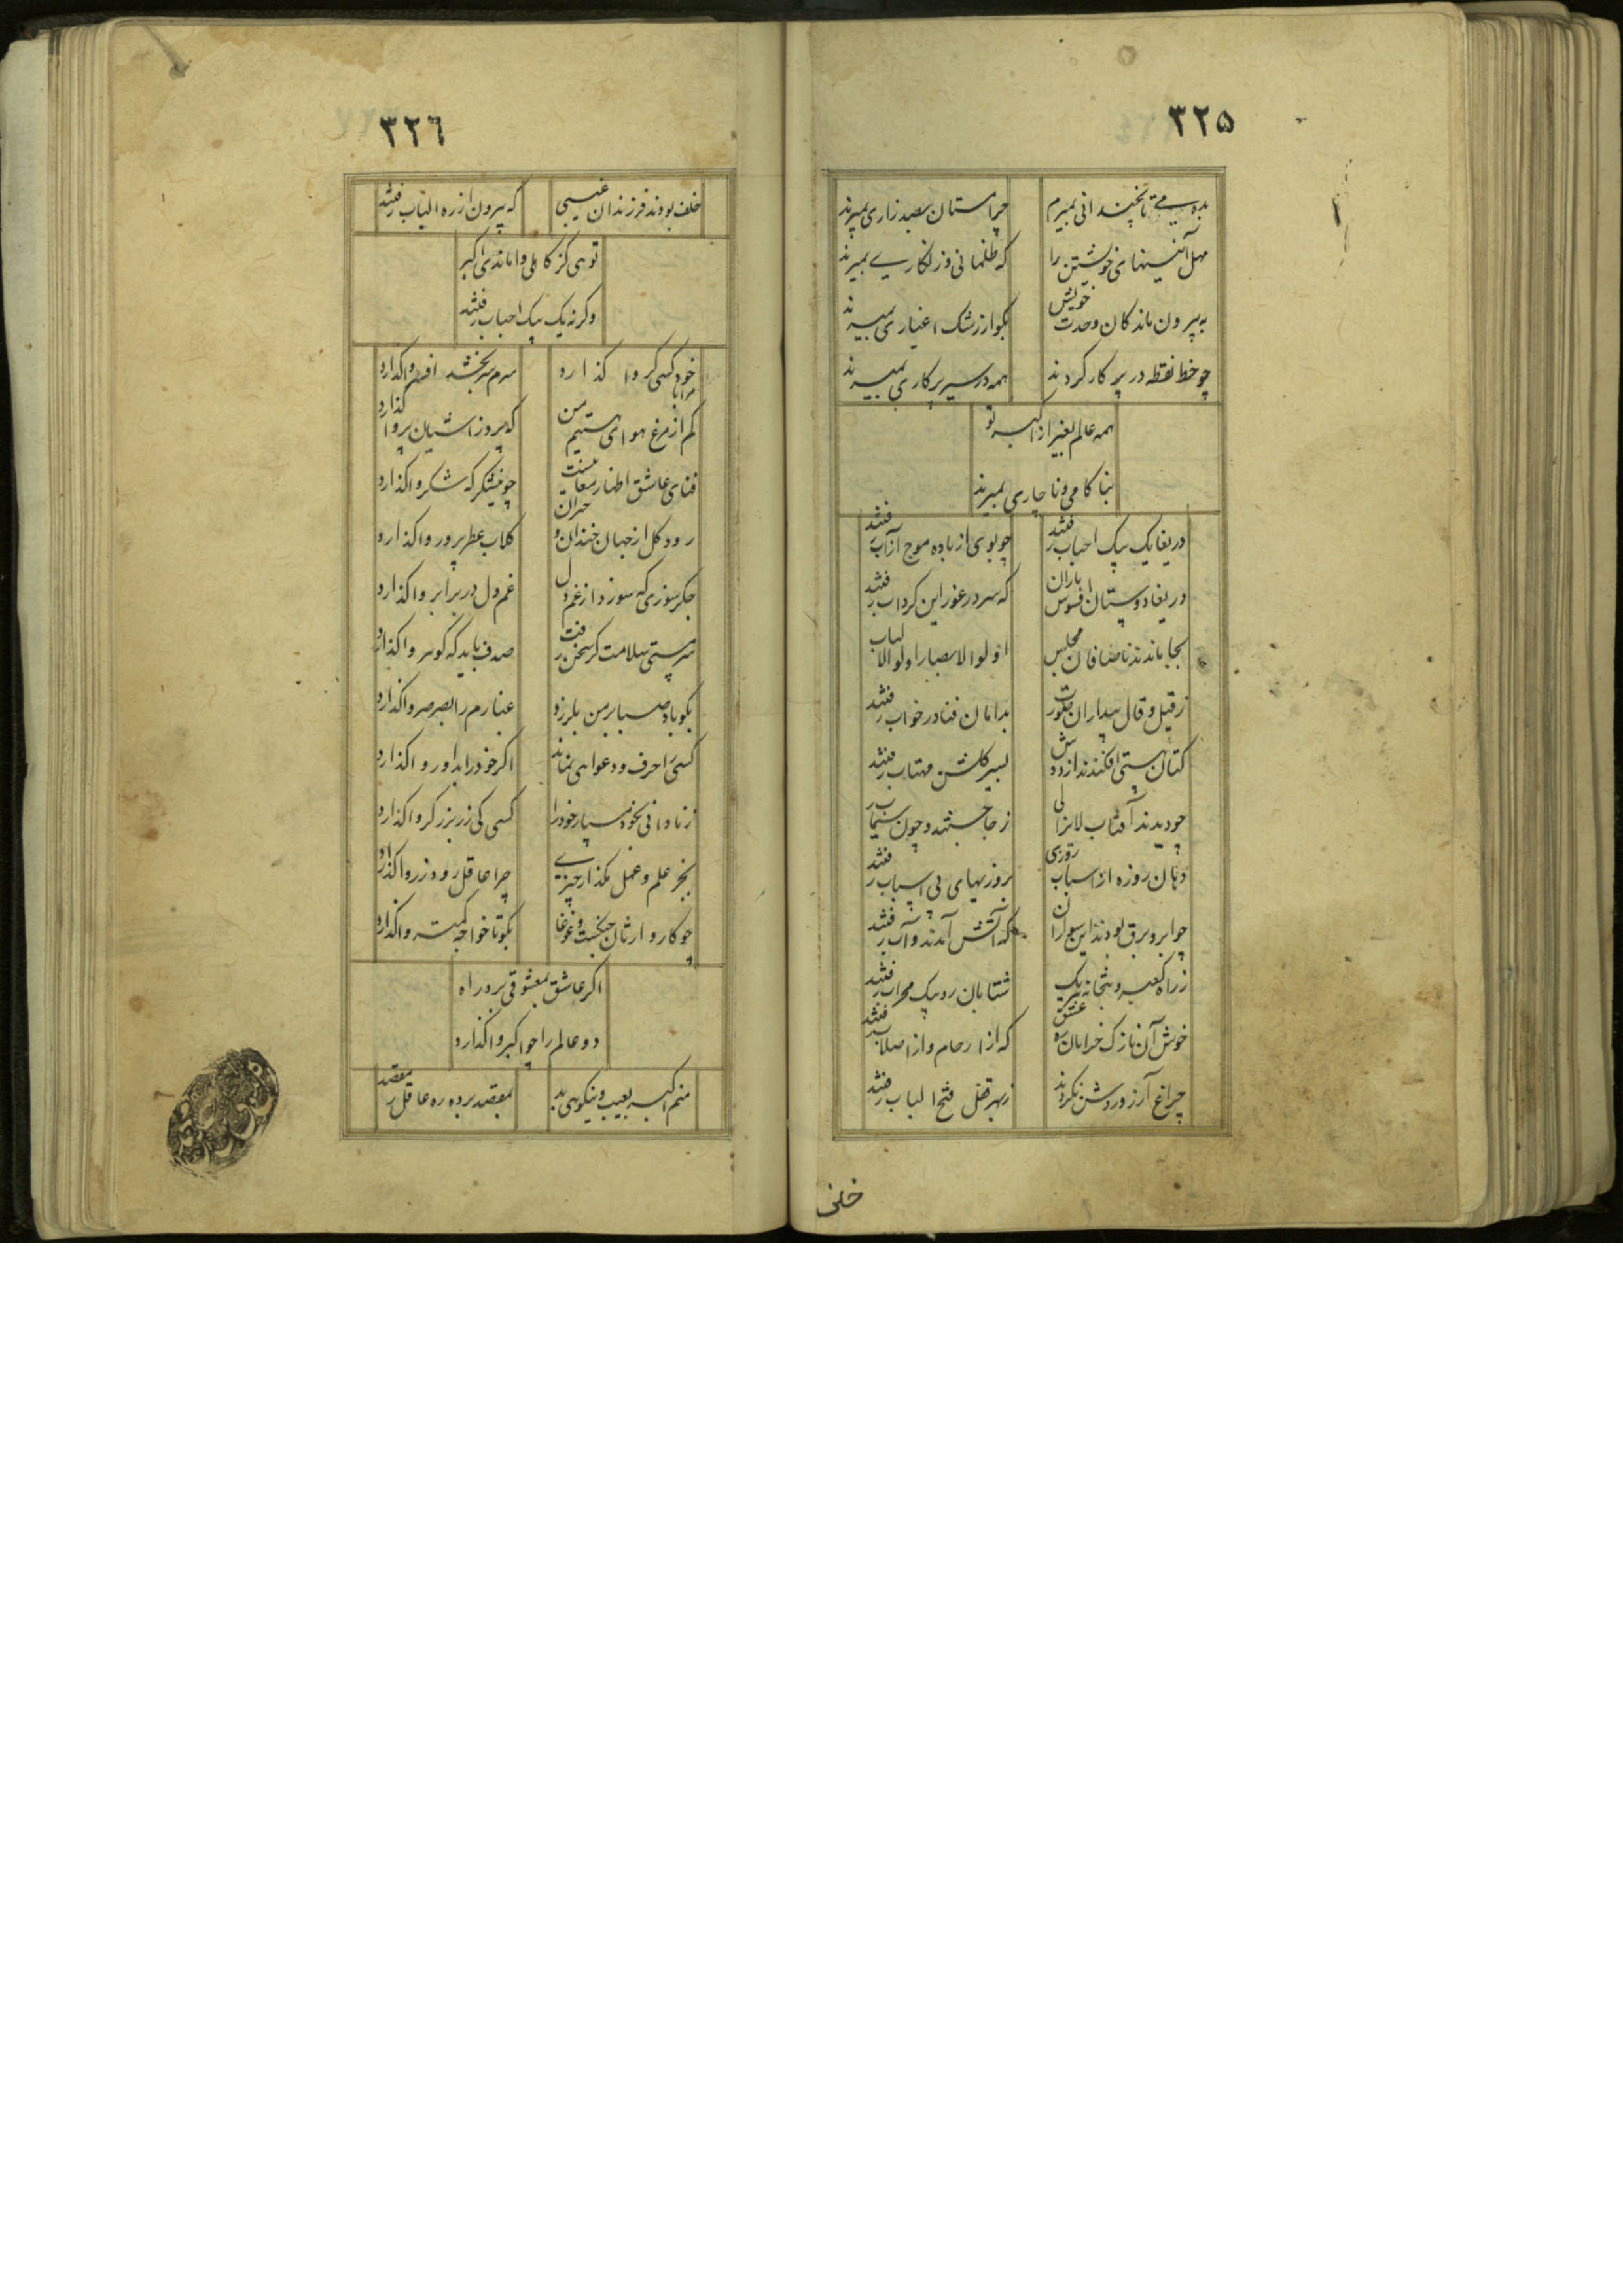 ۳۲۵
بده می تا بچندانی نمیرم چرا مستان بصد زاری بمیرند
مهل آئینهای خویشتن را که ظلمانی و زنکاری بمیرند
به بیرون ماندکان وحدت خویش بکو از رشک اغیاری بمیرند
چو خط نقطه در پرکار کردند همه در سیر پرکاری بمیرند
همه عالم بغیر از اکبر تو
بنا کامی و ناچاری بمیرند
دریغا یک بیک احباب رفتند چو بوی از باده موج از آب رفتند
دریغا دوستان افسوس یاران که سر در غور این کرداب رفتند
بجا ماندند ناصافان مجلس اولوا الابصار اولوا الالباب
ز قیل و قال بیداران بکورت بدامان فنا در خواب رفتند
کتان هستی افکندند از دوش بسیر کلشن مهتاب رفتند
چو دیدند آفتاب لایزالی ز جا جستند و چون سیماب
دهان روزه از اسباب روزی بروزیهای بی اسباب رفتند
چو ابر و برق بودند این سواران که آتش آمدند و آب رفتند
ز راه کعبه و بتخانه یک شتابان رو بیک محراب رفتند
خوش آن نازک خرامان ره عشق که از ارحام و از اصلاب رفتند
چراغ آرزو روشن نکردند زهر قفل فتح الباب رفتند
خلف
۳۲٦
خلف بودند فرزندان عیسی که بیرون از ره الباب رفتند
توهی کز کاهلی واماندی اکبر
وکرنه یک بیک احباب رفتند
خود کسی کروا کذارد سرم سر بخشد افسر واکذارد
کم از مرغ هوای نیستم من که پرواز آشیان پر وا کذارد
فنای عاشق اظهار معانیست چو نیشکر که شکر واکذارد
رود کل از جهان خندان و حیران کلاب عطر پرور واکذارد
جکر سوزی که سوزد از غم دل غم دل در برابر واکذارد
سر مستی سلامت کر سخن رفت صدف باید که کوهر واکذارد
بکو باد صبا بر من بلرزد غبارم را بصرصر واکذارد
کسی را حرف و دعوا هی نماند اکر خود را بداور واکذارد
ز نادانی بخود مسپار خود را کسی کی زر بزرکر واکذارد
بجز علم و عمل مکذار چیزی چرا عاقل رود زر واکذارد
چو کار وارثان جنکست و غوغا بکو تا خواجه کمتر واکذارد
اکر عاشق بمعشوقی برد راه
دو عالم را چو اکبر واکذارد
منم اکبر بعیب و نیکوهی بد بمقصد برده ره عاقل ر مقصد